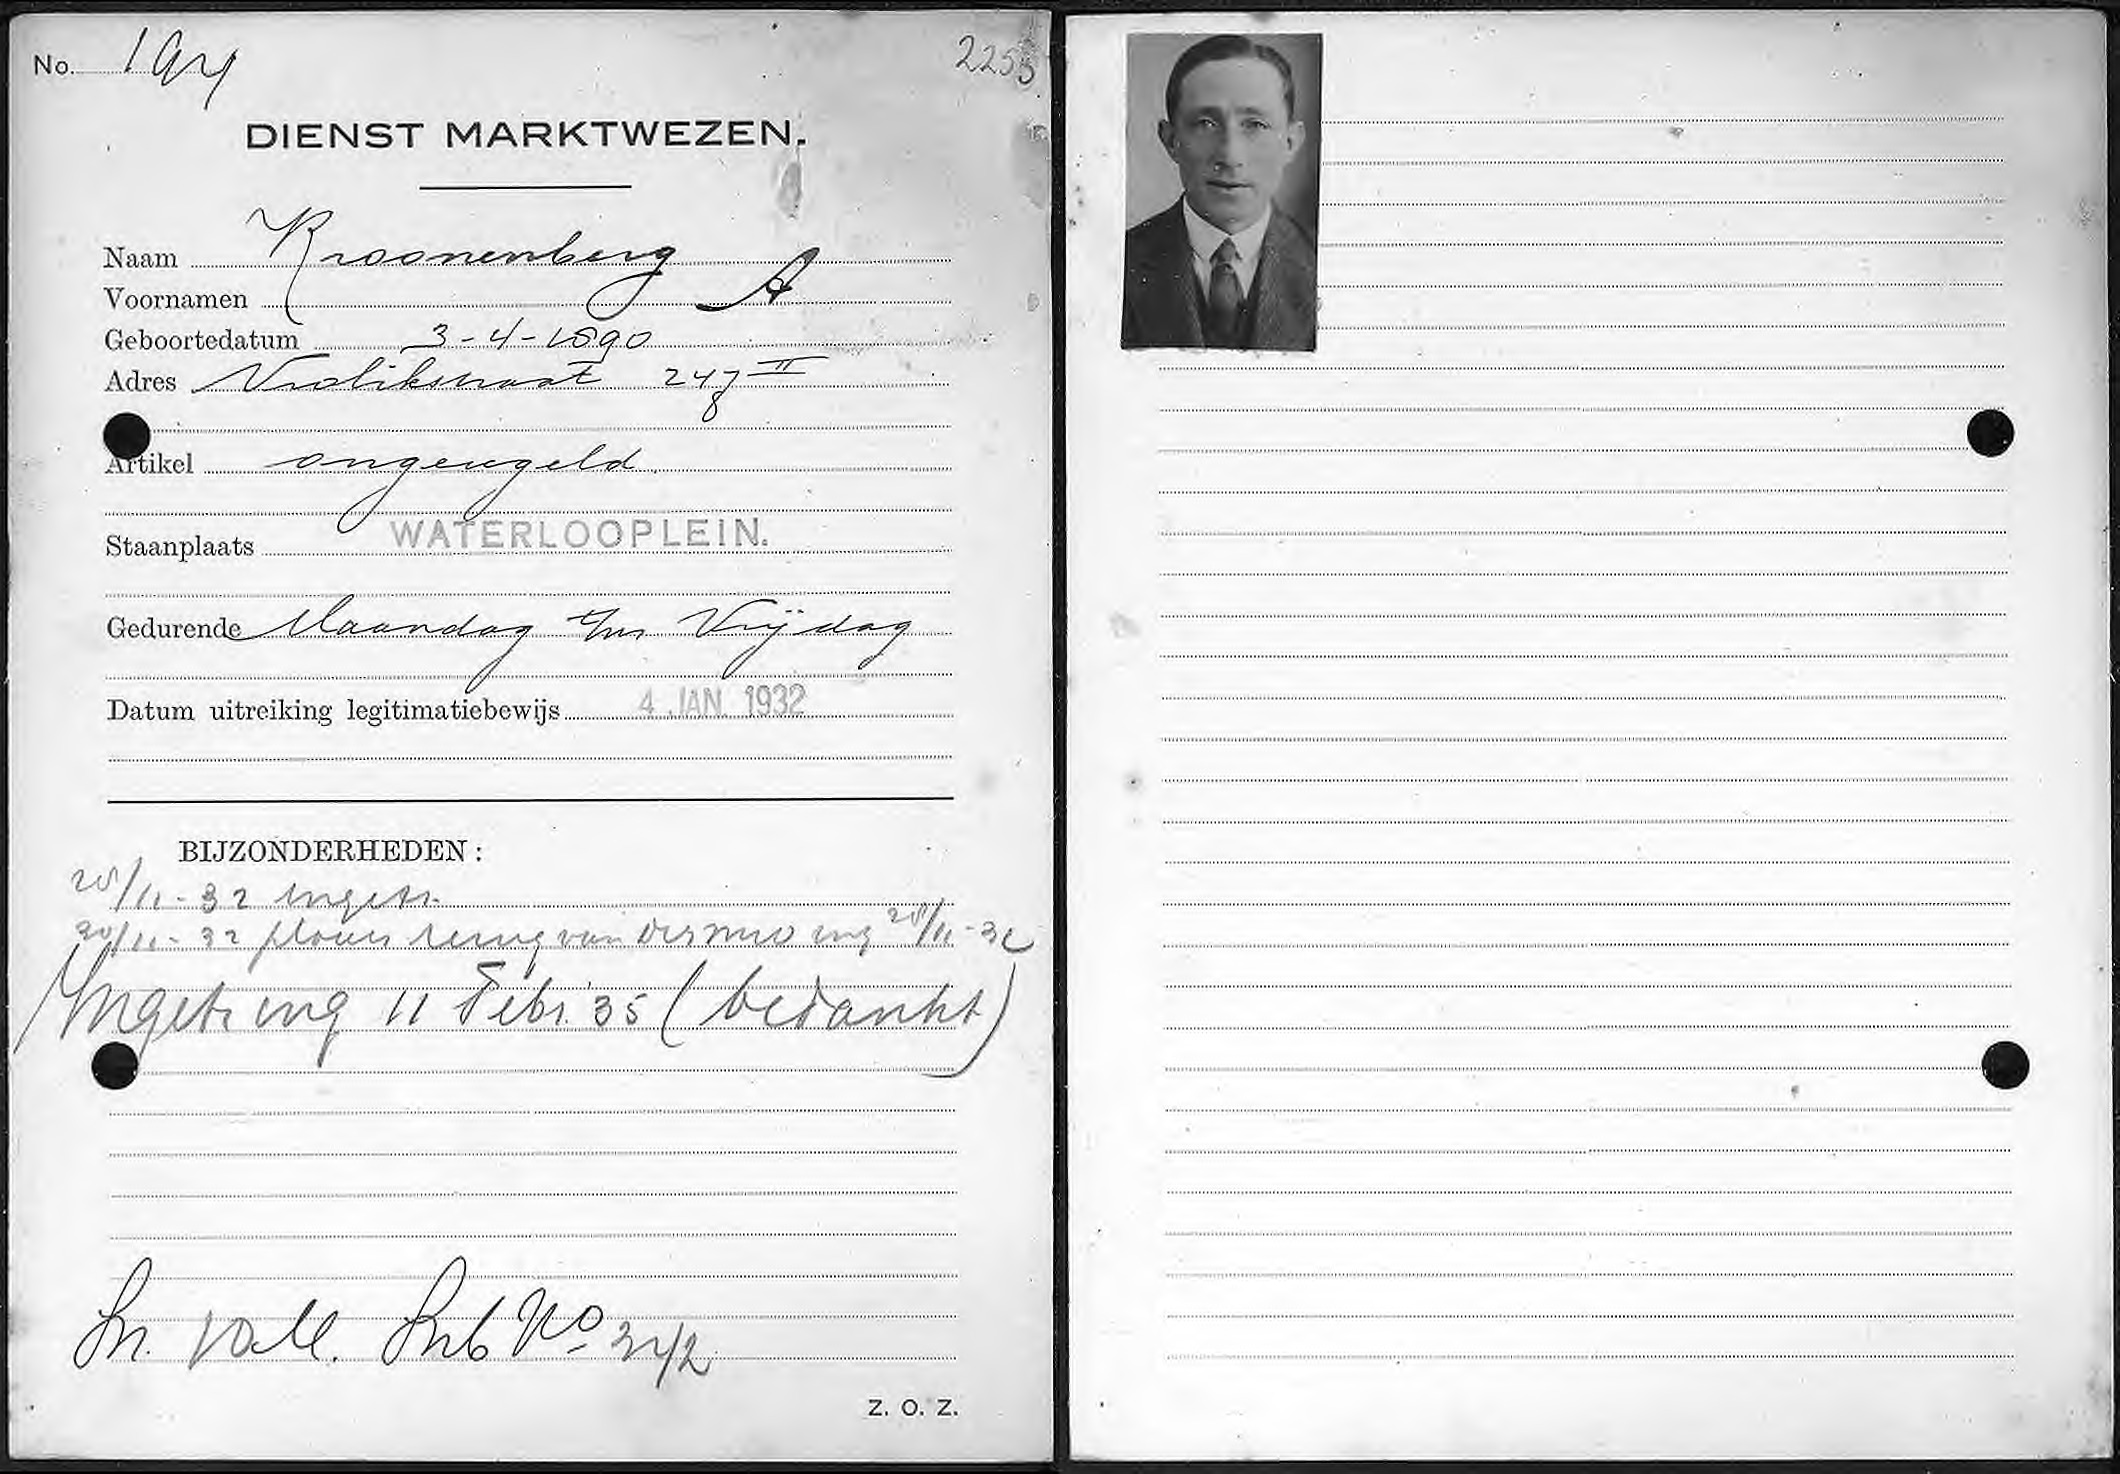 No. 194
2253
DIENST MARKTWEZEN.
Naam Kroonenberg
Voornamen A
Geboortedatum 3-4-1890
Adres Vrolikstraat 247 II
8
Artikel ongeregeld
Staanplaats WATERLOOPLEIN.
Gedurende Maandag t/m Vrijdag
Datum uitreiking legitimatiebewijs 4 JAN. 1932
BIJZONDERHEDEN:
28/11-32 ingetr.
30/11-32 plaats terug van ing 28/11-32
Ingetr. ing 11 Febr. 35 (bedankt)
No
Z. O. Z.